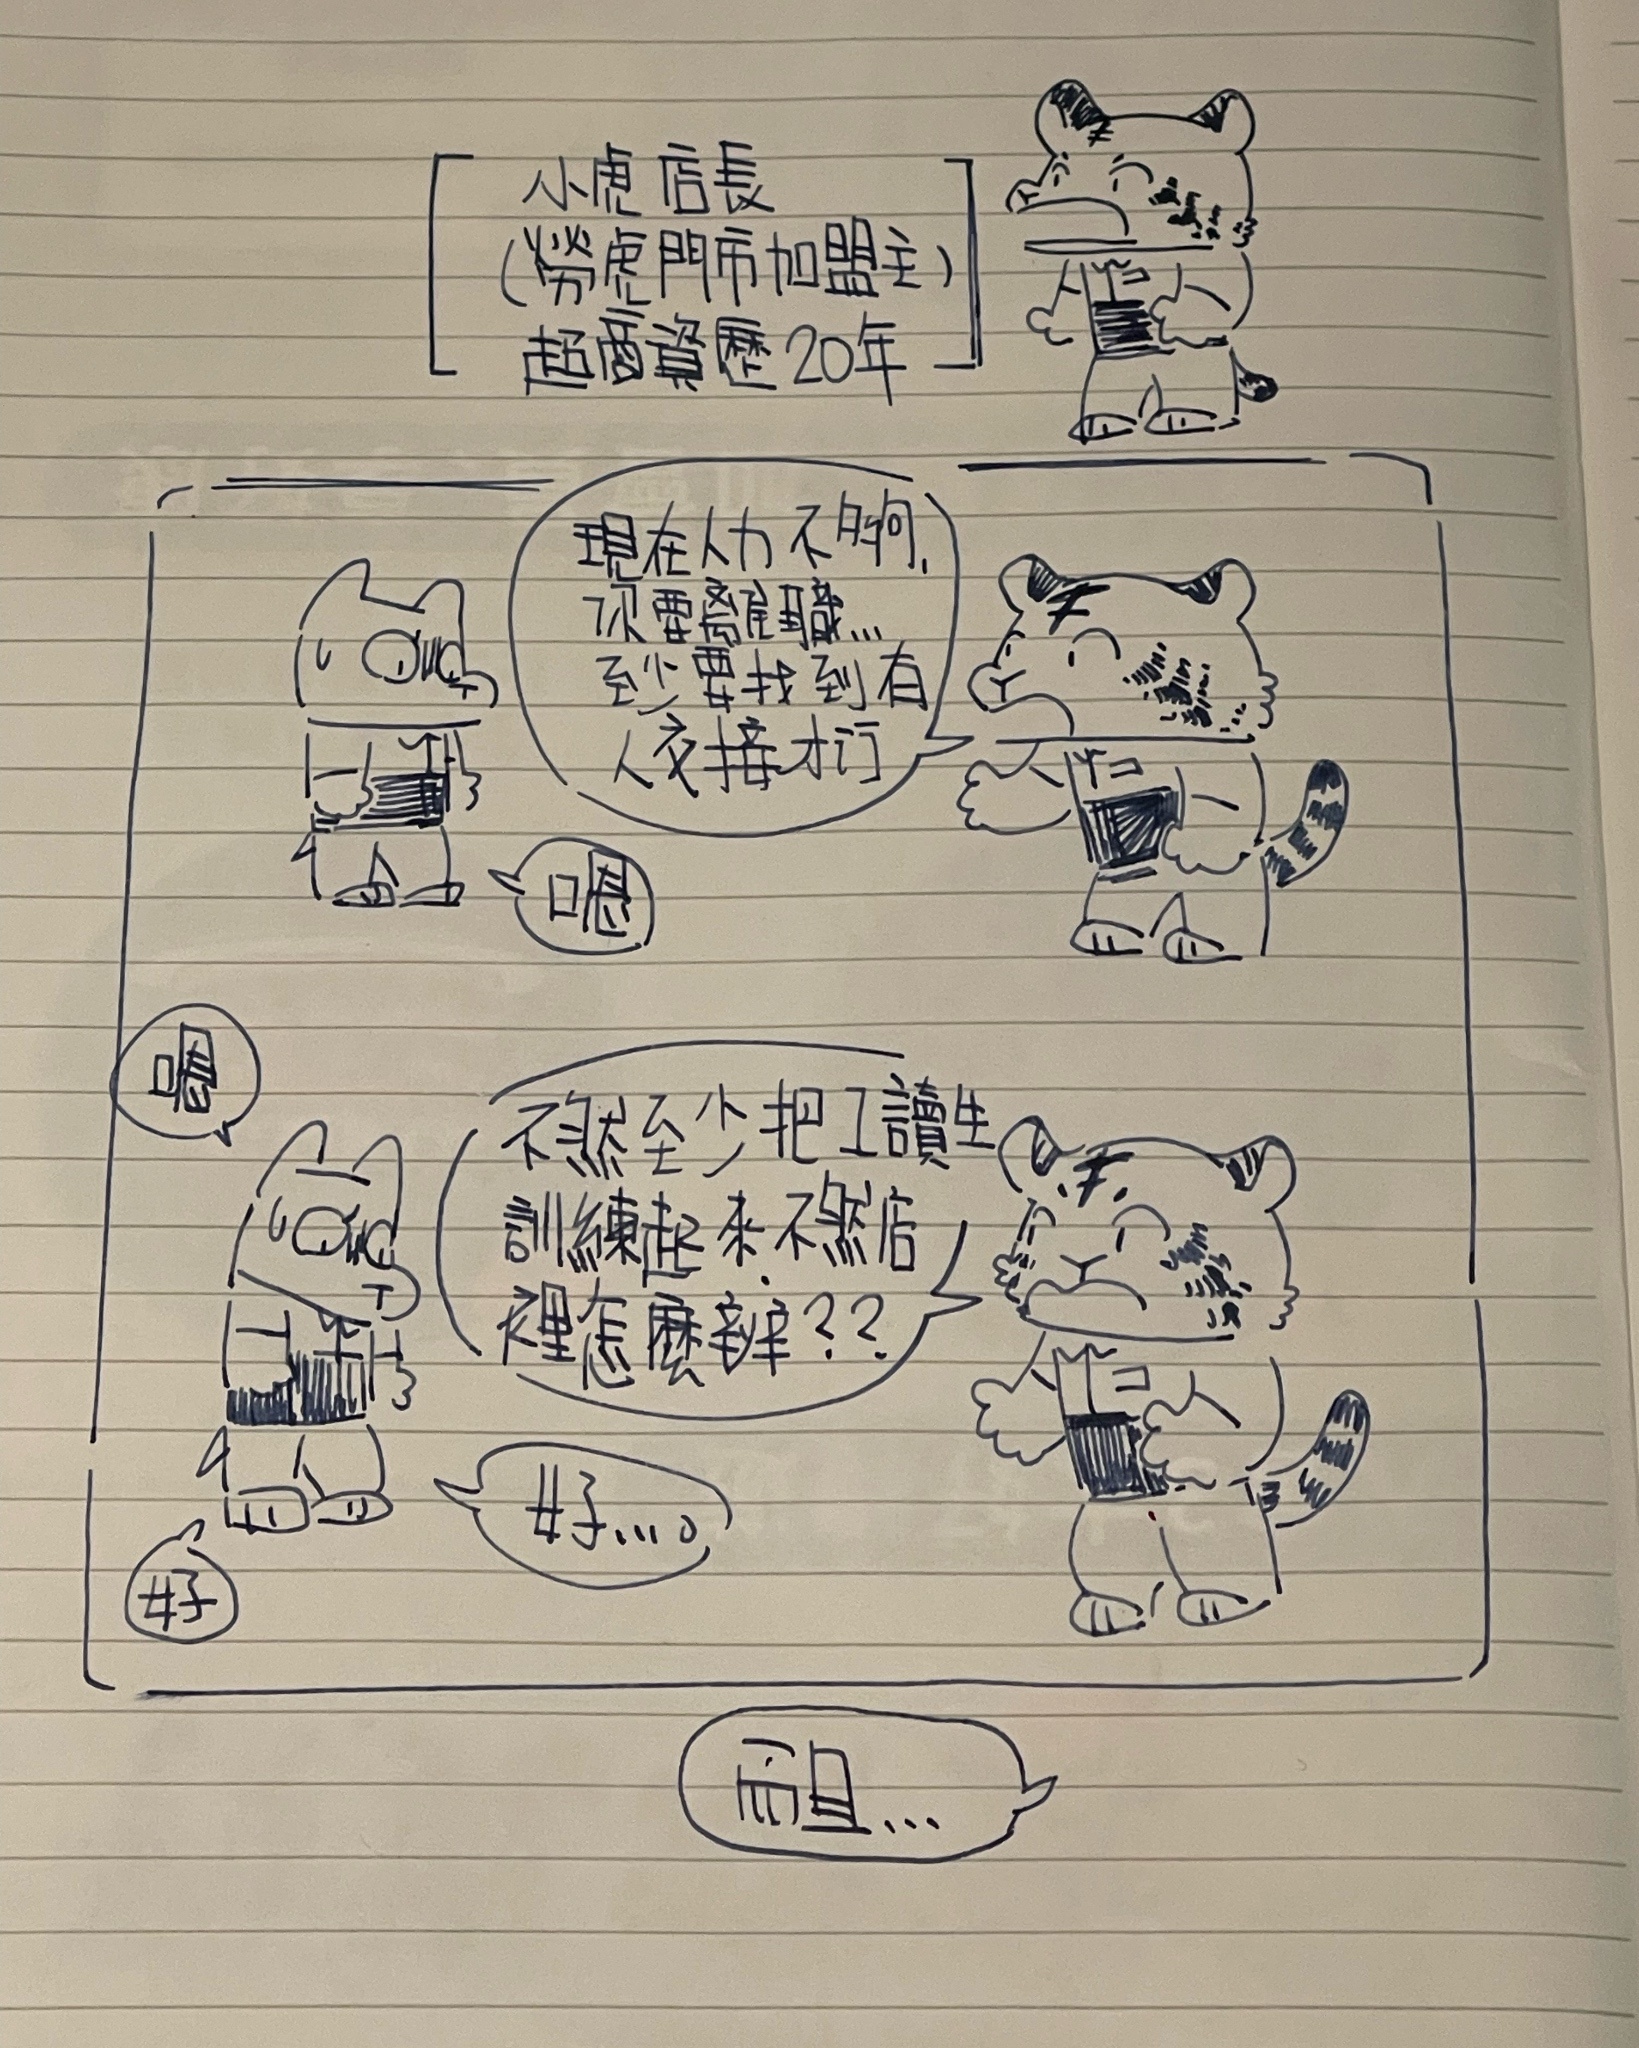 小虎店長
(勞虎門市加盟主)
超商資歷20年
現在人力不夠,
你要離職...
至少要找到有
人交接才行
嗯
嗯
不然至少把工讀生
訓練起來不然店
裡怎麼辦??
好...。
好
而且...